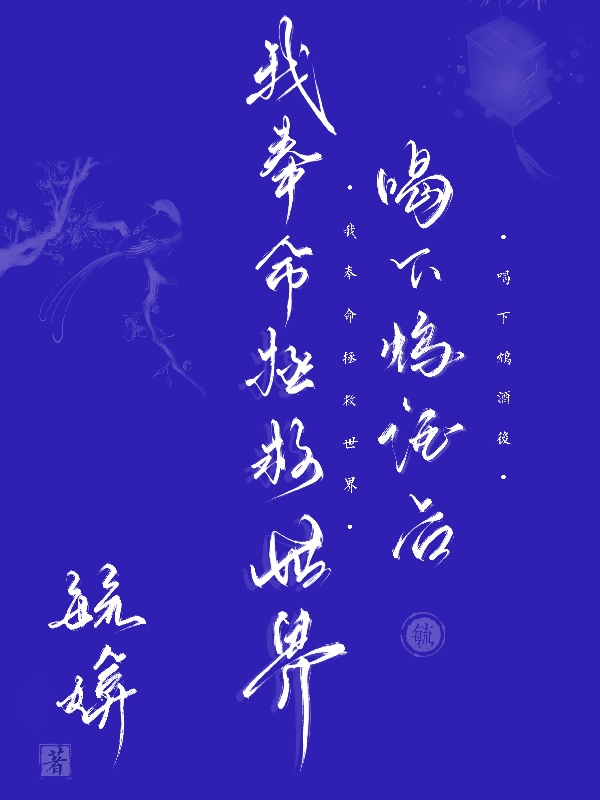 ·喝下鸩酒後·
喝下鸩酒后
毓
·我奉命拯救世界·
我奉命拯救世界
毓
著